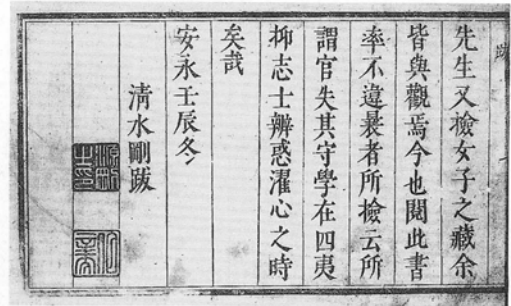 跋
先生又檢女子之藏余
皆與觀焉今也閱此書
率不違曩者所檢云所
謂官失其守學在四夷
抑志士辨惑濯心之時
矣哉
安永壬辰冬
清水剛跋